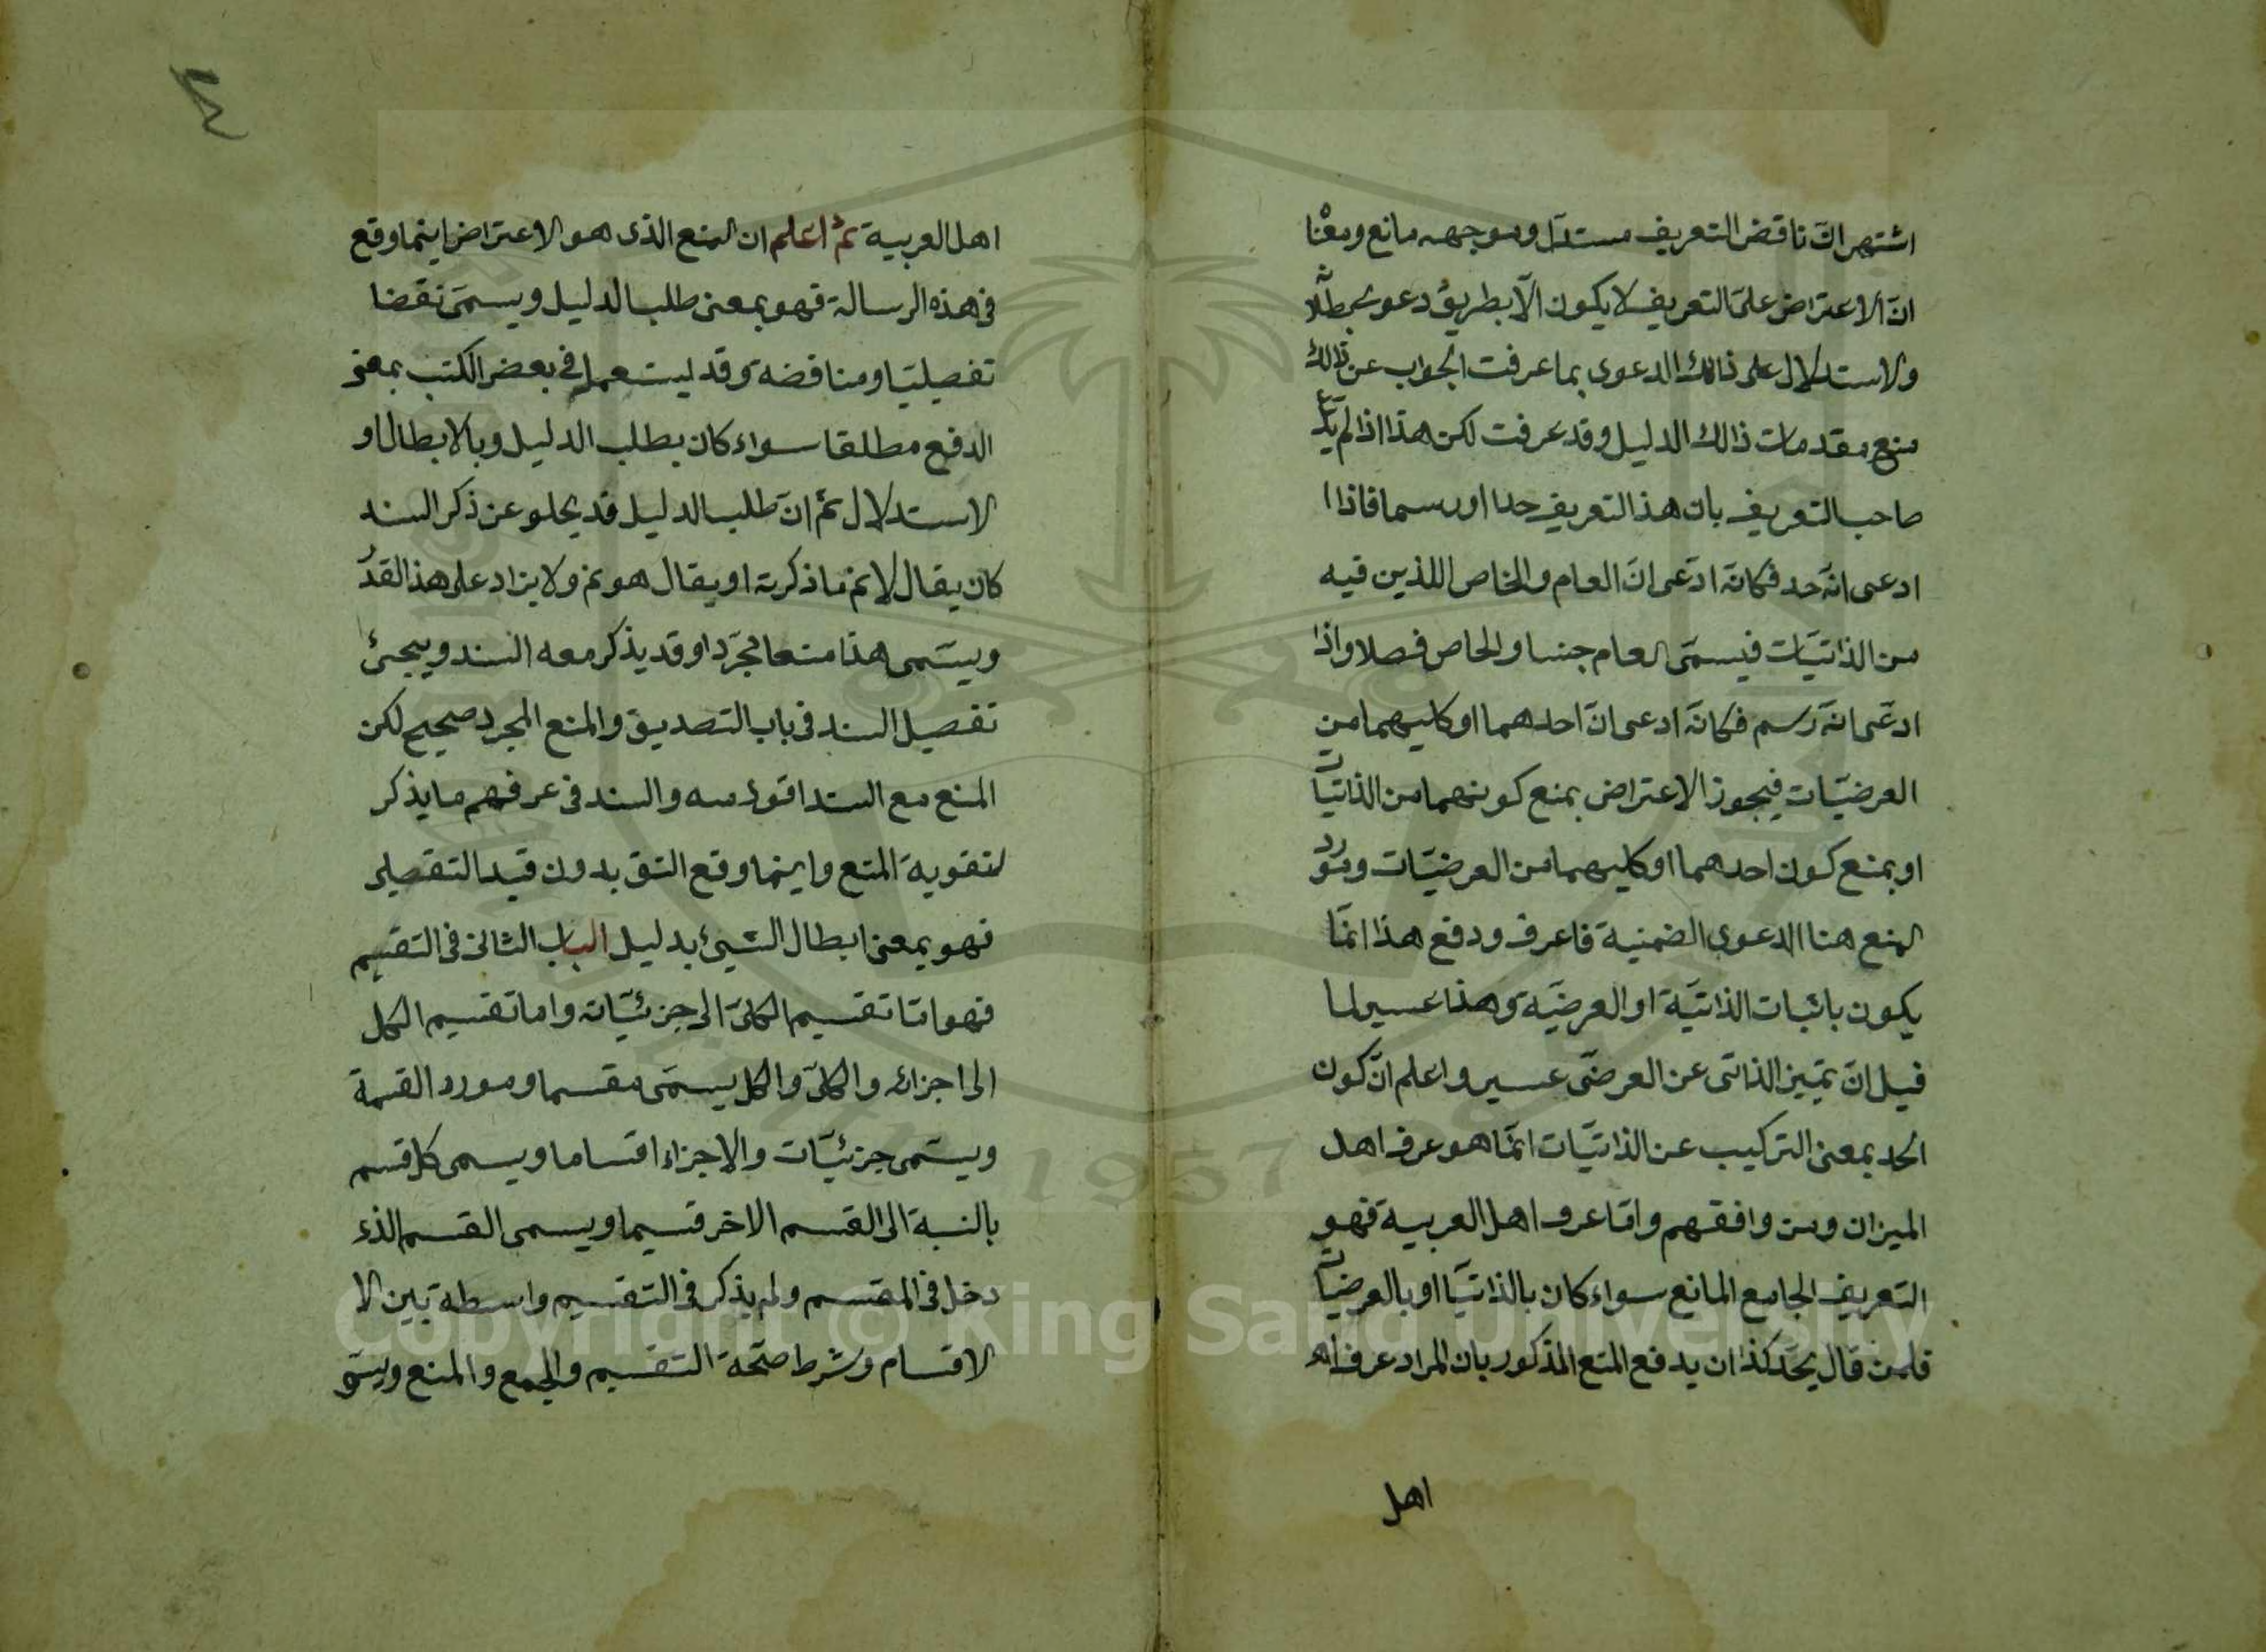 اشتهر ان ناقض التعريف مستدل وموجهه مانع ومعناه
ان الاعتراض على التعريف لا يكون الا بطريق دعوى بطلانه
والاستدلال على ذالك الدعوى بما عرفت الجواب عن ذالك
منع مقدمات ذالك الدليل وقد عرفت لكن هذا اذا لم يدع
صاحب التعريف بان هذ التعريف حدا او رسما فاذا ا
ادعى انّه حد فكانّه ادّعى انّ العام والخاص اللذين فيه
من الذاتيّات فيسمّى العام جنسا والخاص فصلا واذا
ادعّى انّه رسم فكانّه ادعى انّ احدهما او كليهما من
العرضيّات فيجوز الاعتراض بمنع كونهما من الذاتيّات
او بمنع كون احدهما او كليهما من العرضيّات ومورد
المنع هنا الدعوى الضمنية فاعرف ودفع هذا انّما
يكون باثبات الذاتيّة او العرضيّة وهذا عسير لما
قيل انّ تميّز الذاتى عن العرضّى عسير واعلم انّ كون
الحد بمعنى التركيب عن الذاتيّات انّما هو عرف اهل
الميزان ومن وافقهم وامّا عرف اهل العربية فهو
التعريف الجامع المانع سواء كان بالذاتيّا او بالعرضيّات
فلمن قال يحّد كذا ان يدفع المنع المذكور بان المراد عرف اه
اهل
٤
اهل العربية ثمّ اعلم ان المنع الذى هو الاعتراض اينما وقع
فى هذه الرسالة فهو بمعنى طلب الدليل ويسمّى نقضا
تفصيليّا ومناقضة وقد ليستعمل فى بعض الكتب بمعنى
الدفع مطلقا سواء كان بطلب الدليل وبالابطال او
الاستدلال ثمّ انّ طلب الدليل قد يخلو عن ذكر السند
كان يقال لا نم ما ذكرته او يقال هو نم ولا يزاد على هذ القدر
ويسّمى هذا منعا مجرّد او قد يذكر معه السند ويجئ
تفصيل السند فى باب التصديق والمنع المجرد صحيح لكن
المنع مع السند اقوى منه والسند فى عرفهم ما يذكر
لتقوية المنع واينما وقع النق بدون قيد التفصيلى
فهو بمعنى ابطال الشئ بدليل الباب الثانى فى التقسيم
فهو امّا تقسيم الكلىّ الى جزئيّاته واما تقسيم الكل
الى اجزائه والكلىّ والكل يسمّى مقسما ومورد القسمة
ويسّمى جزئيّات والاجزاء اقساما ويسمى كل قسم
بالنسبة الى القسم الاخر قسيما ويسمى القسم الذى
دخل فى المقسم ولم يذكر فى التقسيم واسطة بين الا
الاقسام وشرط صحّة التقسيم والجمع والمنع
Copyright © King Saud University
1957